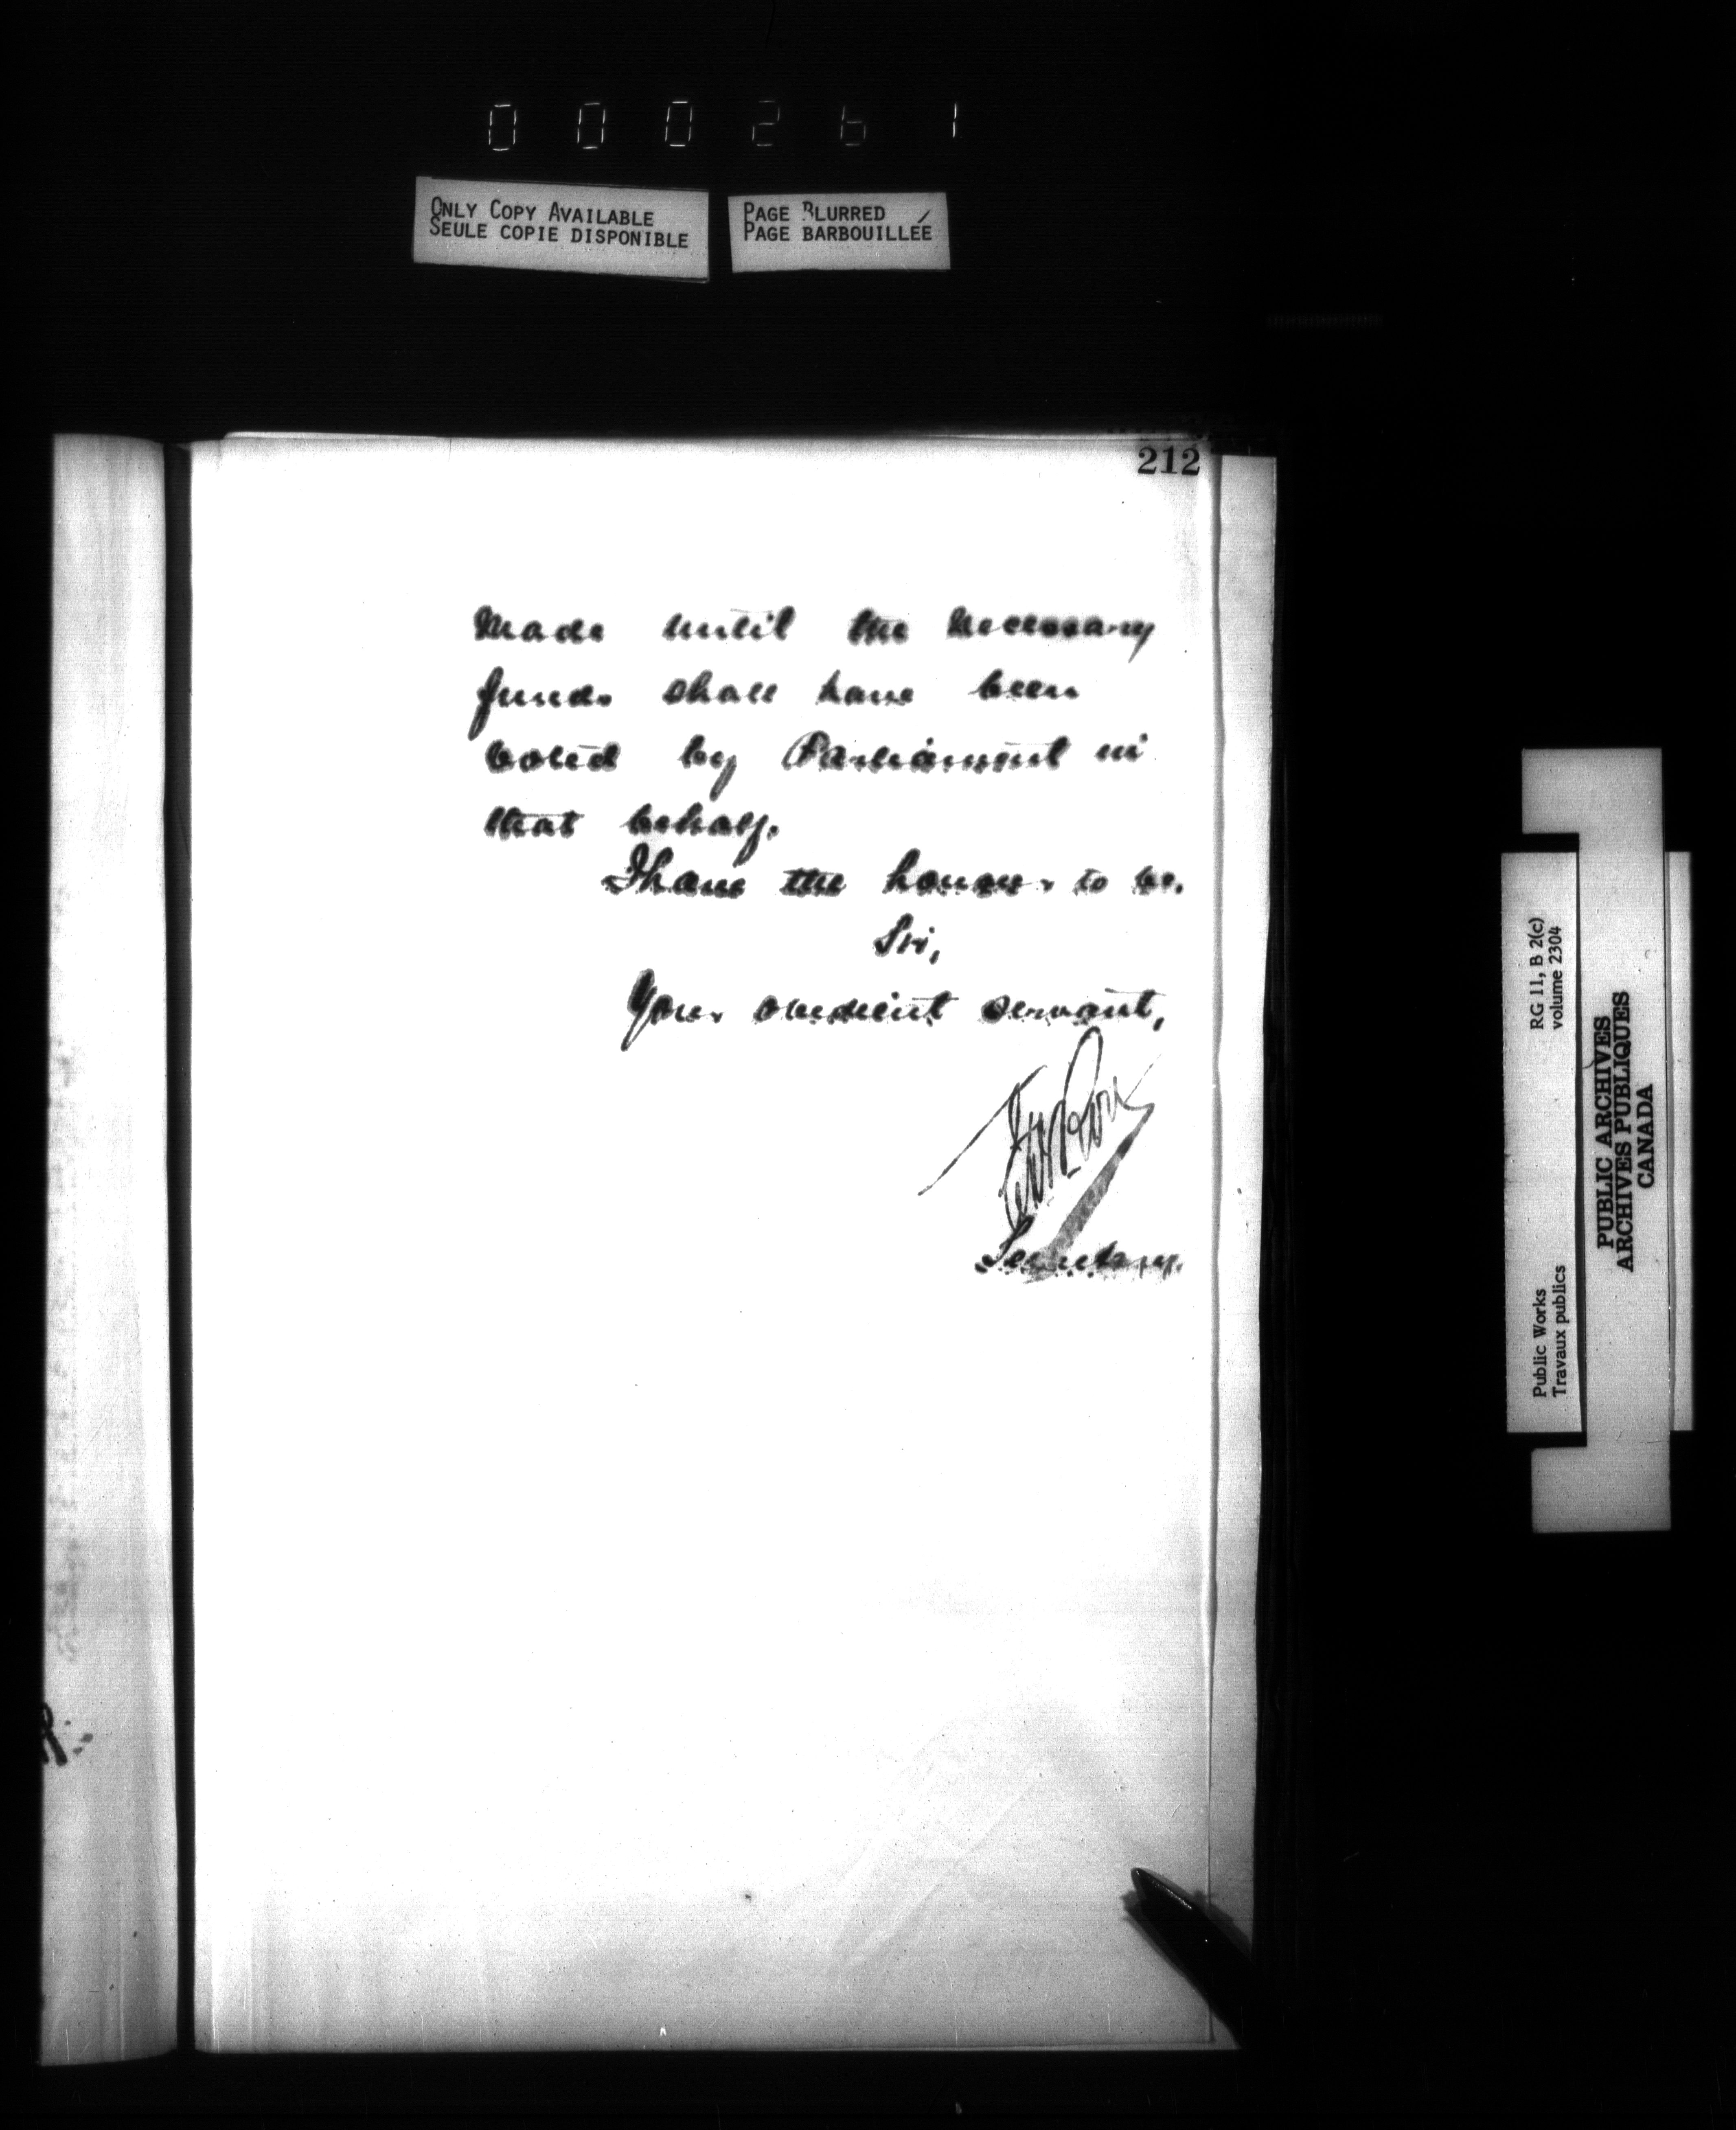 000261
ONLY COPY AVAILABLE
SEULE COPIE DISPONIBLE
PAGE BLURRED
PAGE BARBOUILLÉE
212
made until the necessary
funds shall have been
voted by Parliament in
that behalf.
I have the honour to be,
Sir,
Your obedient servant,
Secretary.
RG 11, B 2(c)
volume 2304
Public Works
Travaux publics
PUBLIC ARCHIVES
ARCHIVES PUBLIQUES
CANADA